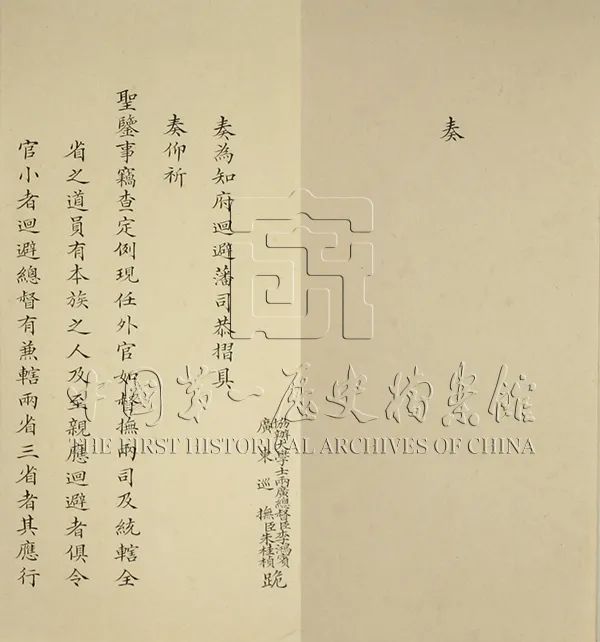 奏
協辦大學士兩廣總督臣李鴻賓
廣東巡撫臣朱桂楨
跪
奏為知府迴避藩司恭摺具
奏仰祈
聖鑒事竊查定例現任外官如督撫兩司及統轄全
省之道員有本族之人及至親應迴避者俱令
官小者迴避總督有兼轄兩省三省者其應行
中國第一歷史檔案館
THE FIRST HISTORICAL ARCHIVES OF CHINA